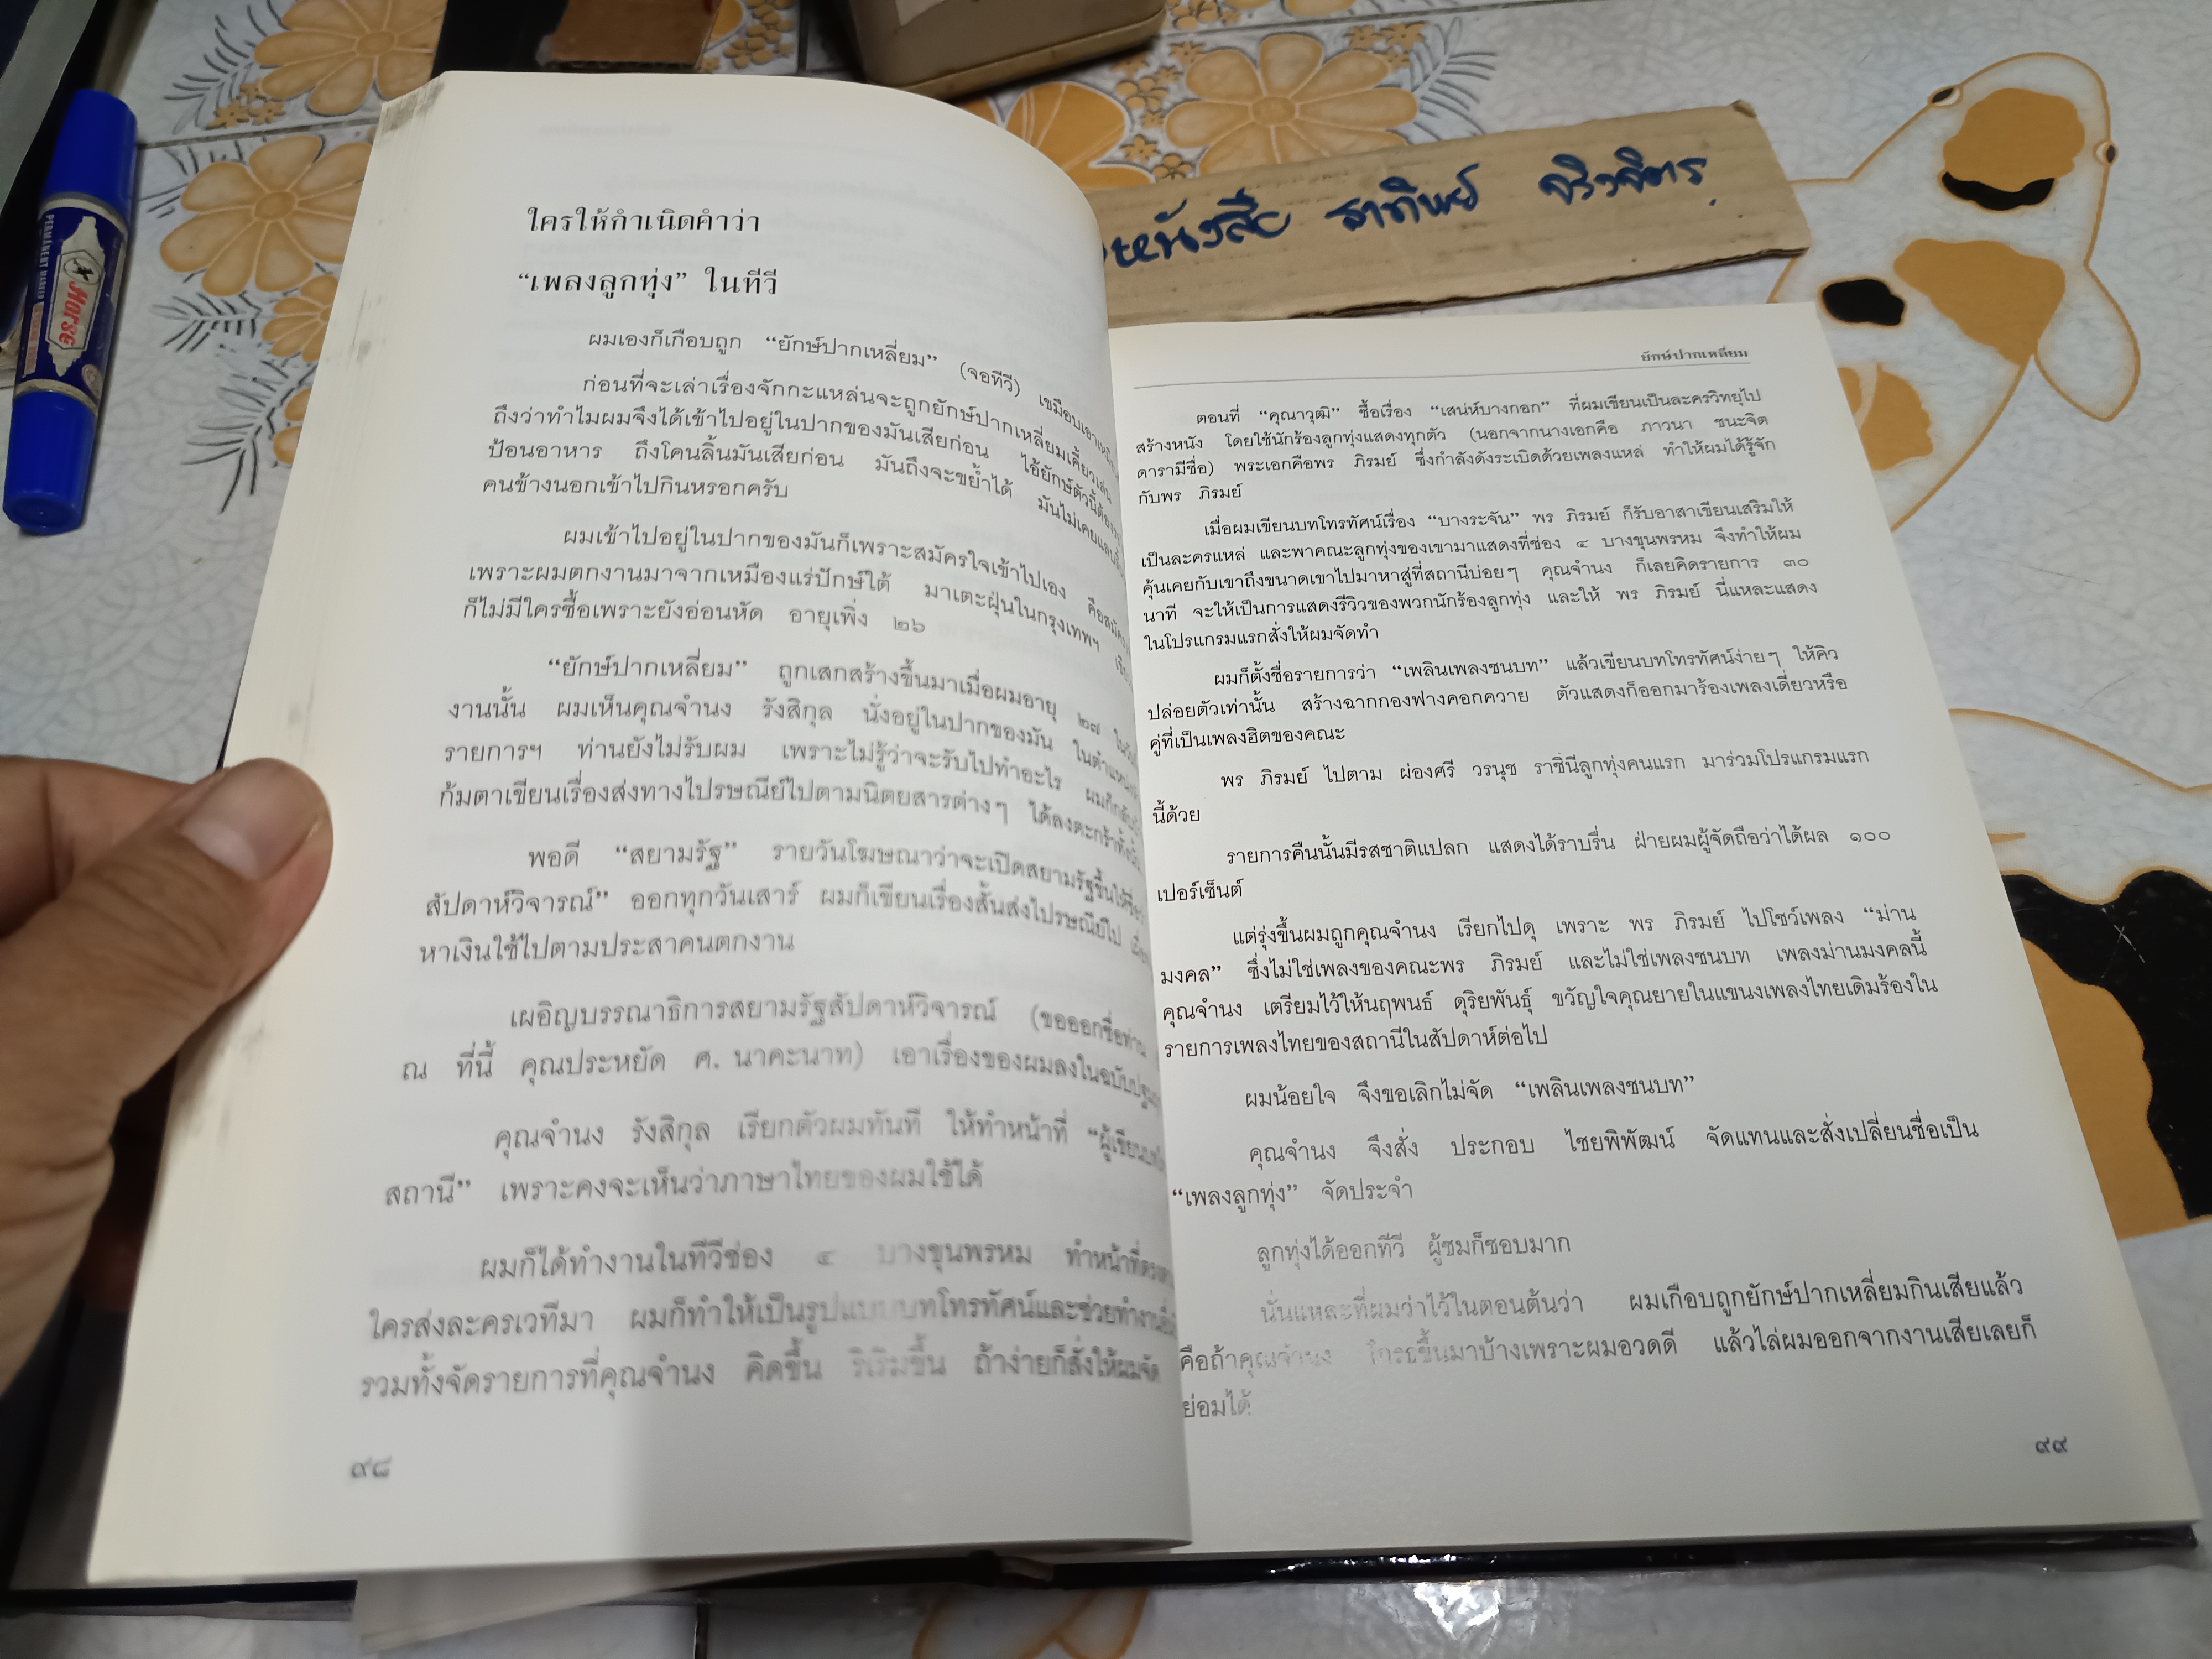 ใครให้กำเนิดคำว่า
“เพลงลูกทุ่ง” ในทีวี
ผมเองก็เกือบถูก “ยักษ์ปากเหลี่ยม” (จอทีวี) เขมือบเอาเหมือน
ก่อนที่จะเล่าเรื่องจักกะแหล่นจะถูกยักษ์ปากเหลี่ยมเคี้ยวเล่น
ถึงว่าทำไมผมจึงได้เข้าไปอยู่ในปากของมันเสียก่อน ไอ้ยักษ์ตัวนี้ต้อง
ป้อนอาหาร ถึงโคนลิ้นมันเสียก่อน มันถึงจะขย้ำได้ มันไม่เคยแลบลิ้น
คนข้างนอกเข้าไปกินหรอกครับ
ผมเข้าไปอยู่ในปากของมันก็เพราะสมัครใจเข้าไปเอง คือสมัคร
เพราะผมตกงานมาจากเหมืองแร่ปักษ์ใต้ มาเตะฝุ่นในกรุงเทพฯ
ก็ไม่มีใครซื้อเพราะยังอ่อนหัด อายุเพิ่ง ๒๖
“ยักษ์ปากเหลี่ยม” ถูกเสกสร้างขึ้นมาเมื่อผมอายุ ๒๗ ในวัน
งานนั้น ผมเห็นคุณจำนง รังสิกุล นั่งอยู่ในปากของมัน ในตำแหน่ง
รายการฯ ท่านยังไม่รับผม เพราะไม่รู้ว่าจะรับไปทำอะไร ผมก็กลับ
ก้มตาเขียนเรื่องส่งทางไปรษณีย์ไปตามนิตยสารต่างๆ ได้ลงตะกร้าทั้งนั้น
พอดี “สยามรัฐ” รายวันโฆษณาว่าจะเปิดสยามรัฐขึ้นใต้ชื่อว่า
สัปดาห์วิจารณ์” ออกทุกวันเสาร์ ผมก็เขียนเรื่องสั้นส่งไปรษณีย์ไป เพื่อ
หาเงินใช้ไปตามประสาคนตกงาน
เผอิญบรรณาธิการสยามรัฐสัปดาห์วิจารณ์ (ขอออกชื่อท่าน
ณ ที่นี้ คุณประหยัด ศ. นาคะนาท) เอาเรื่องของผมลงในฉบับปฐม
คุณจำนง รังสิกุล เรียกตัวผมทันที ให้ทำหน้าที่ “ผู้เขียนบท
สถานี” เพราะคงจะเห็นว่าภาษาไทยของผมใช้ได้
ผมก็ได้ทำงานในทีวีช่อง ๔ บางขุนพรหม ทำหน้าที่ตรวจ
ใครส่งละครเวทีมา ผมก็ทำให้เป็นรูปแบบบทโทรทัศน์และช่วยทำงาน
รวมทั้งจัดรายการที่คุณจำนง คิดขึ้น ริเริ่มขึ้น ถ้าง่ายก็สั่งให้ผมจัด
๙๘
หนังสือ ธาทิพย์
ยักษ์ปากเหลี่ยม
ตอนที่ “คุณาวุฒิ” ซื้อเรื่อง “เสน่ห์บางกอก” ที่ผมเขียนเป็นละครวิทยุไป
สร้างหนัง โดยใช้นักร้องลูกทุ่งแสดงทุกตัว (นอกจากนางเอกคือ ภาวนา ชนะจิต
ดารามีชื่อ) พระเอกคือพร ภิรมย์ ซึ่งกำลังดังระเบิดด้วยเพลงแหล่ ทำให้ผมได้รู้จัก
กับพร ภิรมย์
เมื่อผมเขียนบทโทรทัศน์เรื่อง “บางระจัน” พร ภิรมย์ ก็รับอาสาเขียนเสริมให้
เป็นละครแหล่ และพาคณะลูกทุ่งของเขามาแสดงที่ช่อง ๔ บางขุนพรหม จึงทำให้ผม
คุ้นเคยกับเขาถึงขนาดเขาไปมาหาสู่ที่สถานีบ่อยๆ คุณจำนง ก็เลยคิดรายการ ๓๐
นาที จะให้เป็นการแสดงรีวิวของพวกนักร้องลูกทุ่ง และให้ พร ภิรมย์ นี่แหละแสดง
ในโปรแกรมแรกสั่งให้ผมจัดทำ
ผมก็ตั้งชื่อรายการว่า “เพลินเพลงชนบท” แล้วเขียนบทโทรทัศน์ง่ายๆ ให้คิว
ปล่อยตัวเท่านั้น สร้างฉากกองฟางคอกควาย ตัวแสดงก็ออกมาร้องเพลงเดี่ยวหรือ
คู่ที่เป็นเพลงฮิตของคณะ
พร ภิรมย์ ไปตาม ผ่องศรี วรนุช ราชินีลูกทุ่งคนแรก มาร่วมโปรแกรมแรก
นี้ด้วย
รายการคืนนั้นมีรสชาติแปลก แสดงได้ราบรื่น ฝ่ายผมผู้จัดถือว่าได้ผล ๑๐๐
เปอร์เซ็นต์
แต่รุ่งขึ้นผมถูกคุณจำนง เรียกไปดุ เพราะ พร ภิรมย์ ไปโชว์เพลง “ม่าน
มงคล” ซึ่งไม่ใช่เพลงของคณะพร ภิรมย์ และไม่ใช่เพลงชนบท เพลงม่านมงคลนี้
คุณจำนง เตรียมไว้ให้นฤพนธ์ ดุริยพันธุ์ ขวัญใจคุณยายในแขนงเพลงไทยเดิมร้องใน
รายการเพลงไทยของสถานีในสัปดาห์ต่อไป
ผมน้อยใจ จึงขอเลิกไม่จัด “เพลินเพลงชนบท”
คุณจำนง จึงสั่ง ประกอบ ไชยพิพัฒน์ จัดแทนและสั่งเปลี่ยนชื่อเป็น
“เพลงลูกทุ่ง” จัดประจำ
ลูกทุ่งได้ออกทีวี ผู้ชมก็ชอบมาก
นั่นแหละที่ผมว่าไว้ในตอนต้นว่า ผมเกือบถูกยักษ์ปากเหลี่ยมกินเสียแล้ว
คือถ้าคุณจำนง โกรธขึ้นมาบ้างเพราะผมอวดดี แล้วไล่ผมออกจากงานเสียเลยก็
ย่อมได้
๙๙
Horse
PERMANENT MARKER